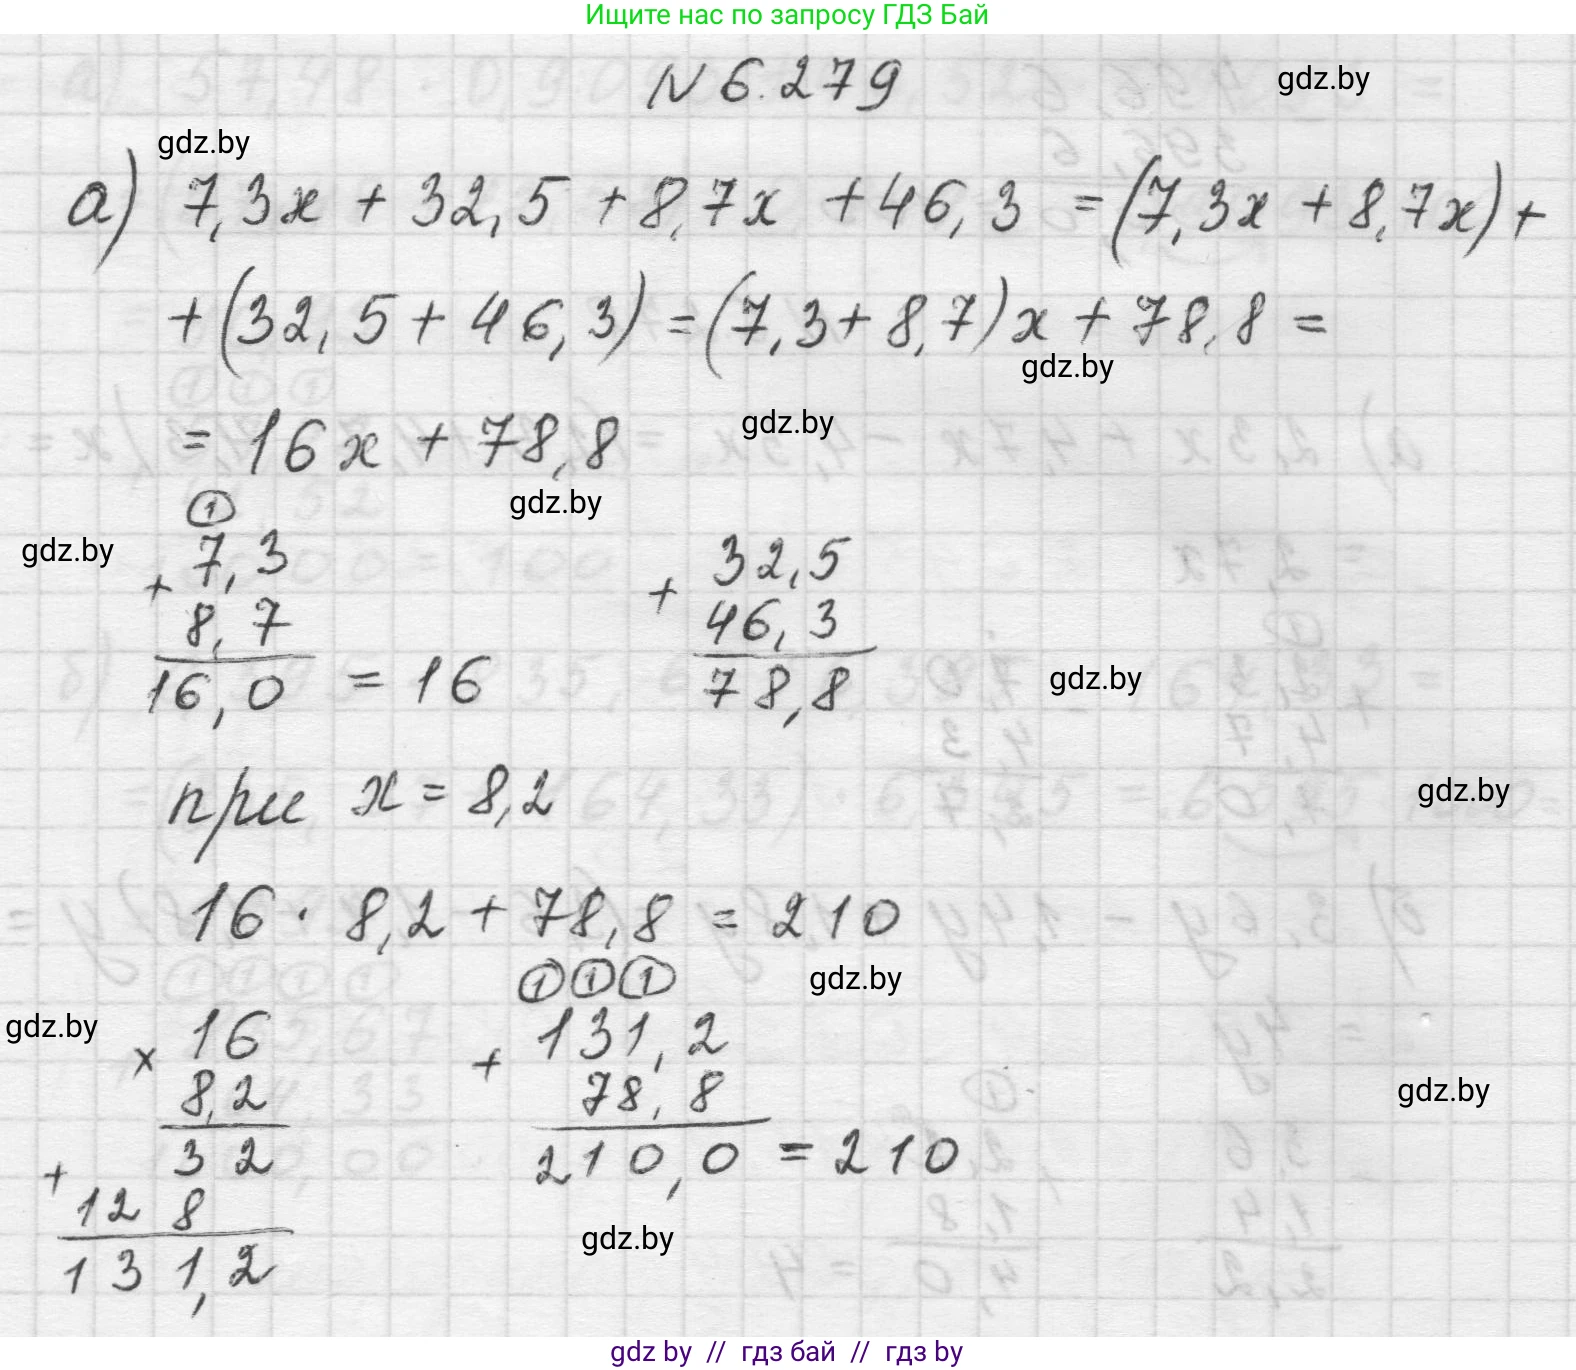 Ищите нас по запросу ГДЗ Бай
N 6.279
gdz.by
gdz.by
а) 7,3x + 32,5 + 8,7x + 46,3 = (7,3x + 8,7x) +
+ (32,5 + 46,3) = (7,3 + 8,7)x + 78,8 =
gdz.by
= 16x + 78,8
gdz.by
gdz.by
1
gdz.by
+ 7,3
8,7
16,0 = 16
+ 32,5
46,3
78,8
gdz.by
при x = 8,2
gdz.by
16 · 8,2 + 78,8 = 210
gdz.by
gdz.by
× 16
8,2
32
+ 128
131,2
1 1 1
+ 131,2
78,8
210,0 = 210
gdz.by
gdz.by
gdz by // гдз бай // гдз by